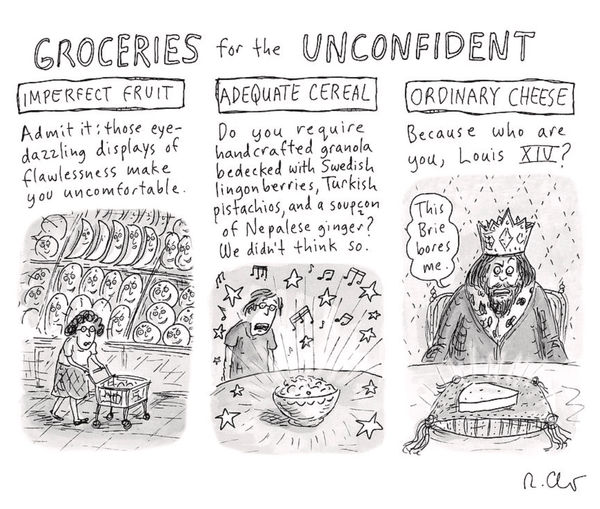 GROCERIES for the UNCONFIDENT
IMPERFECT FRUIT
Admit it: those eye-
dazzling displays of
flawlessness make
you uncomfortable.
ADEQUATE CEREAL
Do you require
handcrafted granola
bedecked with Swedish
lingonberries, Turkish
pistachios, and a soupçon
of Nepalese ginger?
We didn't think so.
ORDINARY CHEESE
Because who are
you, Louis XIV?
This
Brie
bores
me.
R. Ch